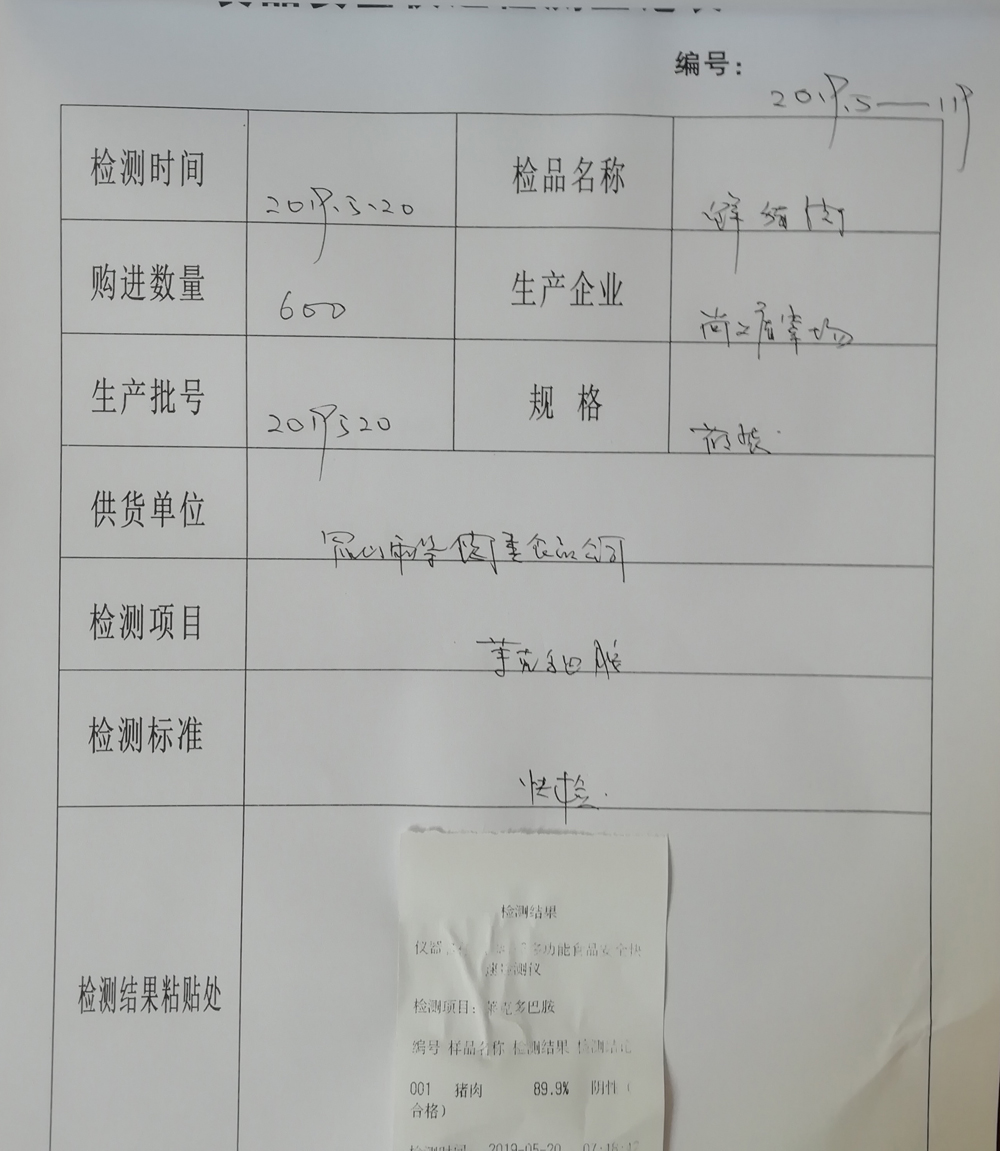 编号：
2019.5——119
检测时间 2019.5.20 检品名称 鲜猪肉
购进数量 600 生产企业
生产批号 2019520 规 格
供货单位 食品公司
检测项目 莱克多巴胺
检测标准 快检.
检测结果粘贴处
检测结果
仪器 多功能食品安全快
速检测仪
检测项目：莱克多巴胺
编号 样品名称 检测结果 检测结论
001 猪肉 89.9% 阴性（
合格）
检测时间 2019-05-20 07:18: